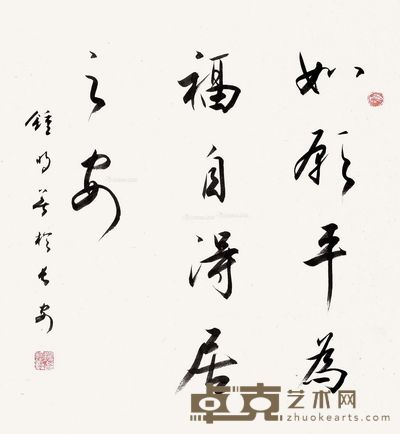 如願平為
福自得居
之安
鍾明善於長安
卓克艺术网
zhuokearts.com